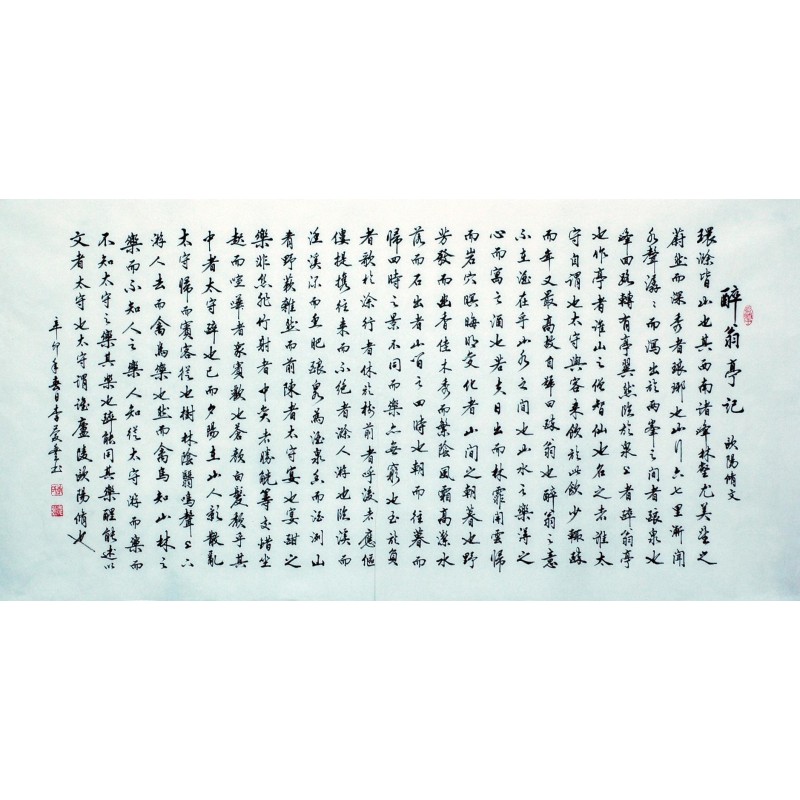 醉翁亭记
欧陽脩文
環滁皆山也其西南諸峰林壑尤美望之
蔚然而深秀者琅琊也山行六七里漸聞
水聲潺〻而瀉出於兩峯之間者釀泉也
峰回路轉有亭翼然臨於泉上者醉翁亭
也作亭者誰山之僧智仙也名之者誰太
守自謂也太守與客來飲於此飲少輒醉
而年又最高故自號曰醉翁也醉翁之意
不在酒在乎山水之間也山水之樂得之
心而寓之酒也若夫日出而林霏開雲歸
而岩穴暝晦明變化者山間之朝暮也野
芳發而幽香佳木秀而繁陰風霜高潔水
落而石出者山間之四時也朝而往暮而
歸四時之景不同而樂亦無窮也至於負
者歌於塗行者休於樹前者呼後者應傴
僂提攜往來而不絕者滁人游也臨溪而
漁溪深而魚肥釀泉為酒泉香而酒洌山
肴野蔌雜然而前陳者太守宴也宴酣之
樂非絲非竹射者中奕者勝觥籌交錯坐
起而諠譁者衆賓歡也蒼顏白髮頹乎其
中者太守醉也已而夕陽在山人影散亂
太守歸而賓客從也樹林陰翳鳴聲上下
游人去而禽鳥樂也然而禽鳥知山林之
樂而不知人之樂人知從太守游而樂而
不知太守之樂其樂也醉能同其樂醒能述以
文者太守也太守謂誰廬陵歐陽脩也
辛卯年春日李